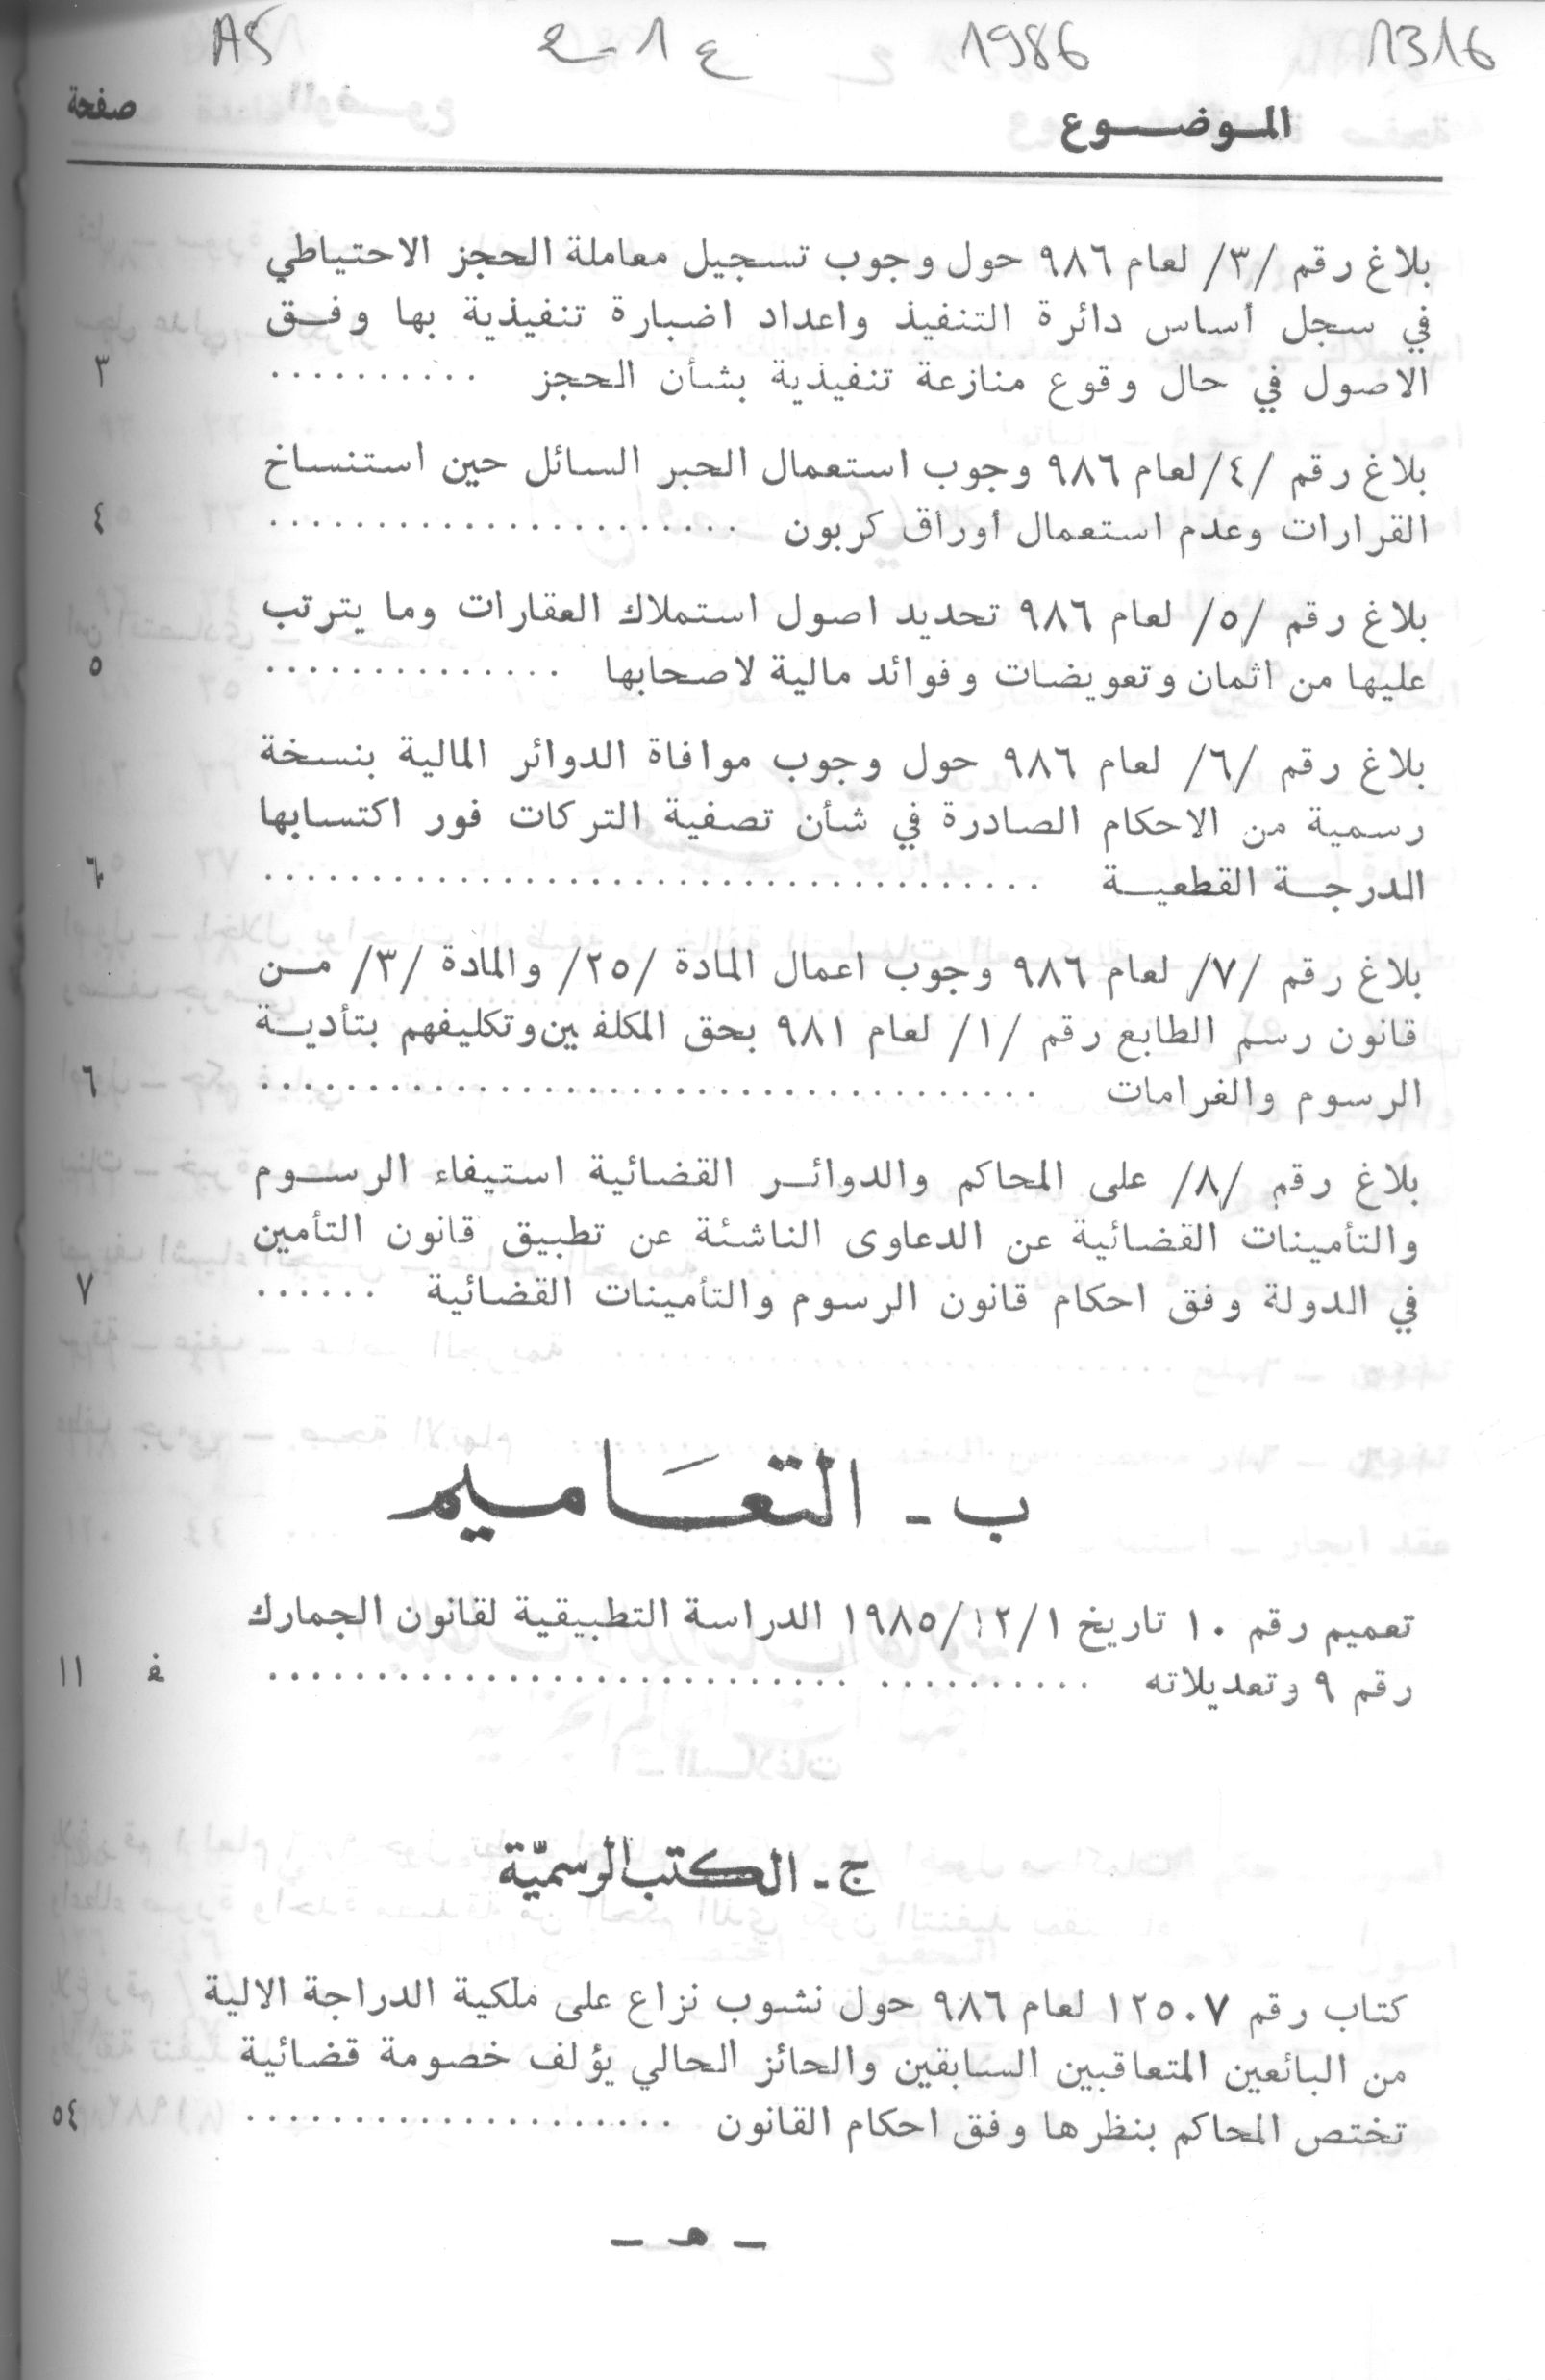 1316 1986 ع 1-2 A5
الموضوع صفحة
بلاغ رقم /٣/ لعام ٩٨٦ حول وجوب تسجيل معاملة الحجز الاحتياطي
في سجل أساس دائرة التنفيذ واعداد اضبارة تنفيذية بها وفق
الاصول في حال وقوع منازعة تنفيذية بشأن الحجز .......... ٣
بلاغ رقم /٤/ لعام ٩٨٦ وجوب استعمال الحبر السائل حين استنساخ
القرارات وعدم استعمال أوراق كربون ...................... ٤
بلاغ رقم /٥/ لعام ٩٨٦ تحديد اصول استملاك العقارات وما يترتب
عليها من اثمان وتعويضات وفوائد مالية لاصحابها .............. ٥
بلاغ رقم /٦/ لعام ٩٨٦ حول وجوب موافاة الدوائر المالية بنسخة
رسمية من الاحكام الصادرة في شأن تصفية التركات فور اكتسابها
الدرجة القطعية .................................... ٦
بلاغ رقم /٧/ لعام ٩٨٦ وجوب اعمال المادة /٢٥/ والمادة /٣/ من
قانون رسم الطابع رقم /١/ لعام ٩٨١ بحق المكلفين وتكليفهم بتأدية
الرسوم والغرامات .................................... ٦
بلاغ رقم /٨/ على المحاكم والدوائر القضائية استيفاء الرسوم
والتأمينات القضائية عن الدعاوى الناشئة عن تطبيق قانون التأمين
في الدولة وفق احكام قانون الرسوم والتأمينات القضائية ...... ٧
ب - التعَاميم
تعميم رقم ١٠ تاريخ ١٩٨٥/١٢/١ الدراسة التطبيقية لقانون الجمارك
رقم ٩ وتعديلاته ...................................... ف ١١
ج - الكتب الرسميّة
كتاب رقم ١٢٥٠٧ لعام ٩٨٦ حول نشوب نزاع على ملكية الدراجة الالية
من البائعين المتعاقبين السابقين والحائز الحالي يؤلف خصومة قضائية
تختص المحاكم بنظرها وفق احكام القانون .................... ٥٤
- هـ -